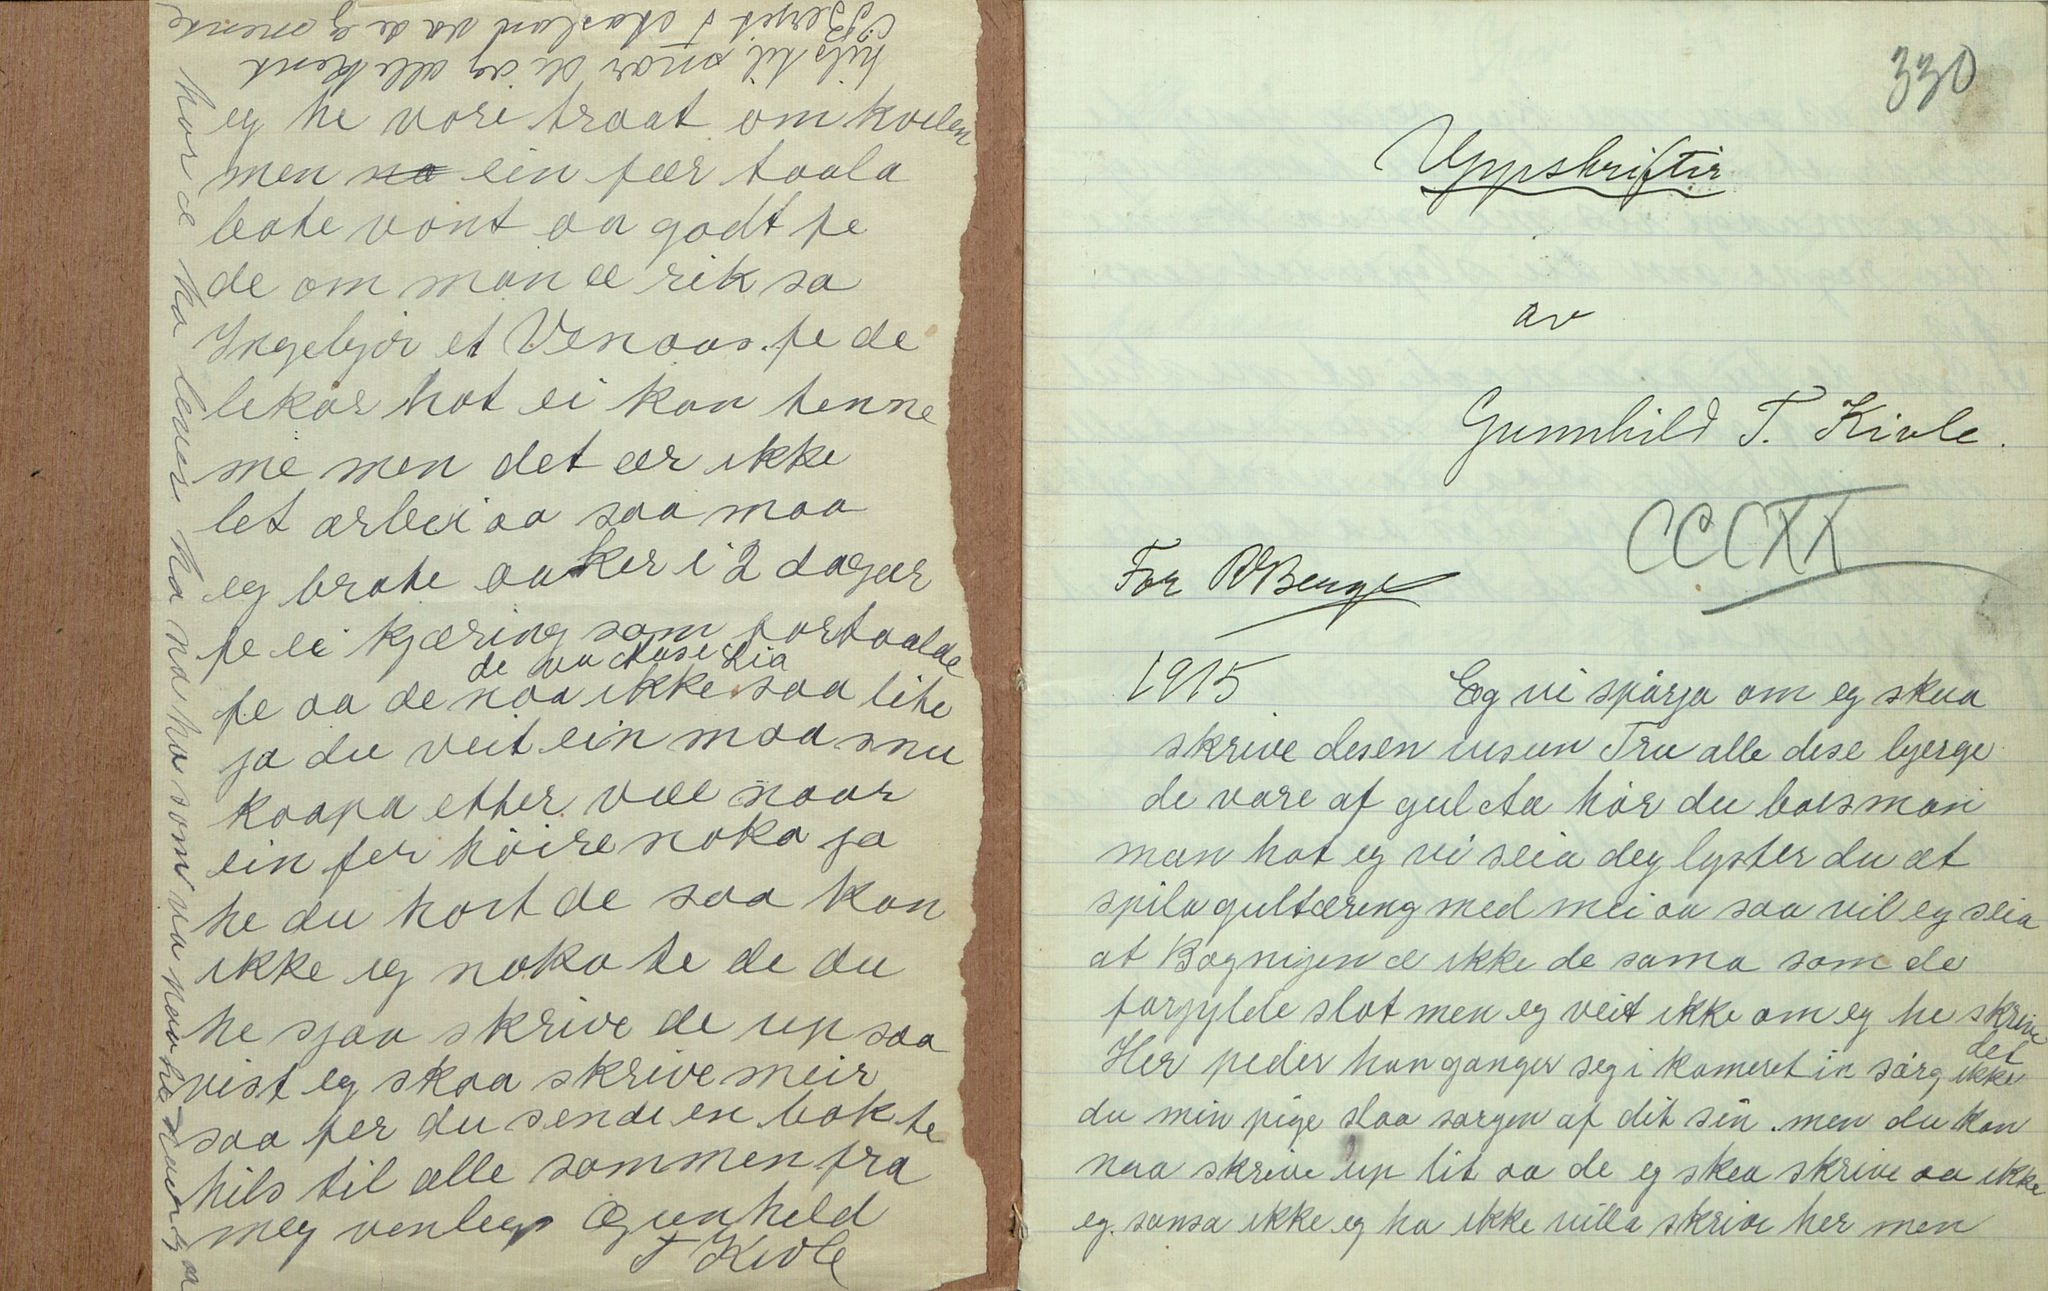 hils til mor di og alle kent
Berjit T Aasland va de eg mente
eg he vore traat om kvelen
men no ein fær taala
bate vont aa godt fe
de om man æ rik sa
Ingebjør et Venaas. fe de
lekar hot ei kan tenne
me men det ær ikke
let arbei aa saa maa
eg brate aaker i 2 dagær
fe ei kjæring som fortaalde
de va Aase Lia
fe aa de naa ikke saa lite
ja du veit ein maa snu
kaapa etter væe naar
ein fer høire noko ja
he du hort de saa kan
ikke eg noko te de du
he sjaa skrive de up saa
vist eg skaa skrive meir
saa fer du sende en bok te
hils til alle sammen fra
meg venleg Gunhild
T Kivle
hor æ ha lever ha na ha som va naa he
330
Uppskriftir
av
Gunnhild T. Kivle.
CCCXX
For R Berge
1915
Eg vi spørja om eg skua
skrive desen visun Tru alle dese bjerge
de vare af gul Aa hør du baasman
man hot eg vi seia deg lyster du æt
spila gultæring med mei aa saa vil eg seia
at Bognigen æ ikke de sama som de
forgylde slot men eg veit ikke om eg he skrive
det
Her peder han ganger seg i kameret in sørg ikke
du min pige slaa sorgen af dit sin . men du kan
naa skrive up lit aa de eg skea skrive aa ikke
eg. sansa ikke eg ha ikke villa skrive her men